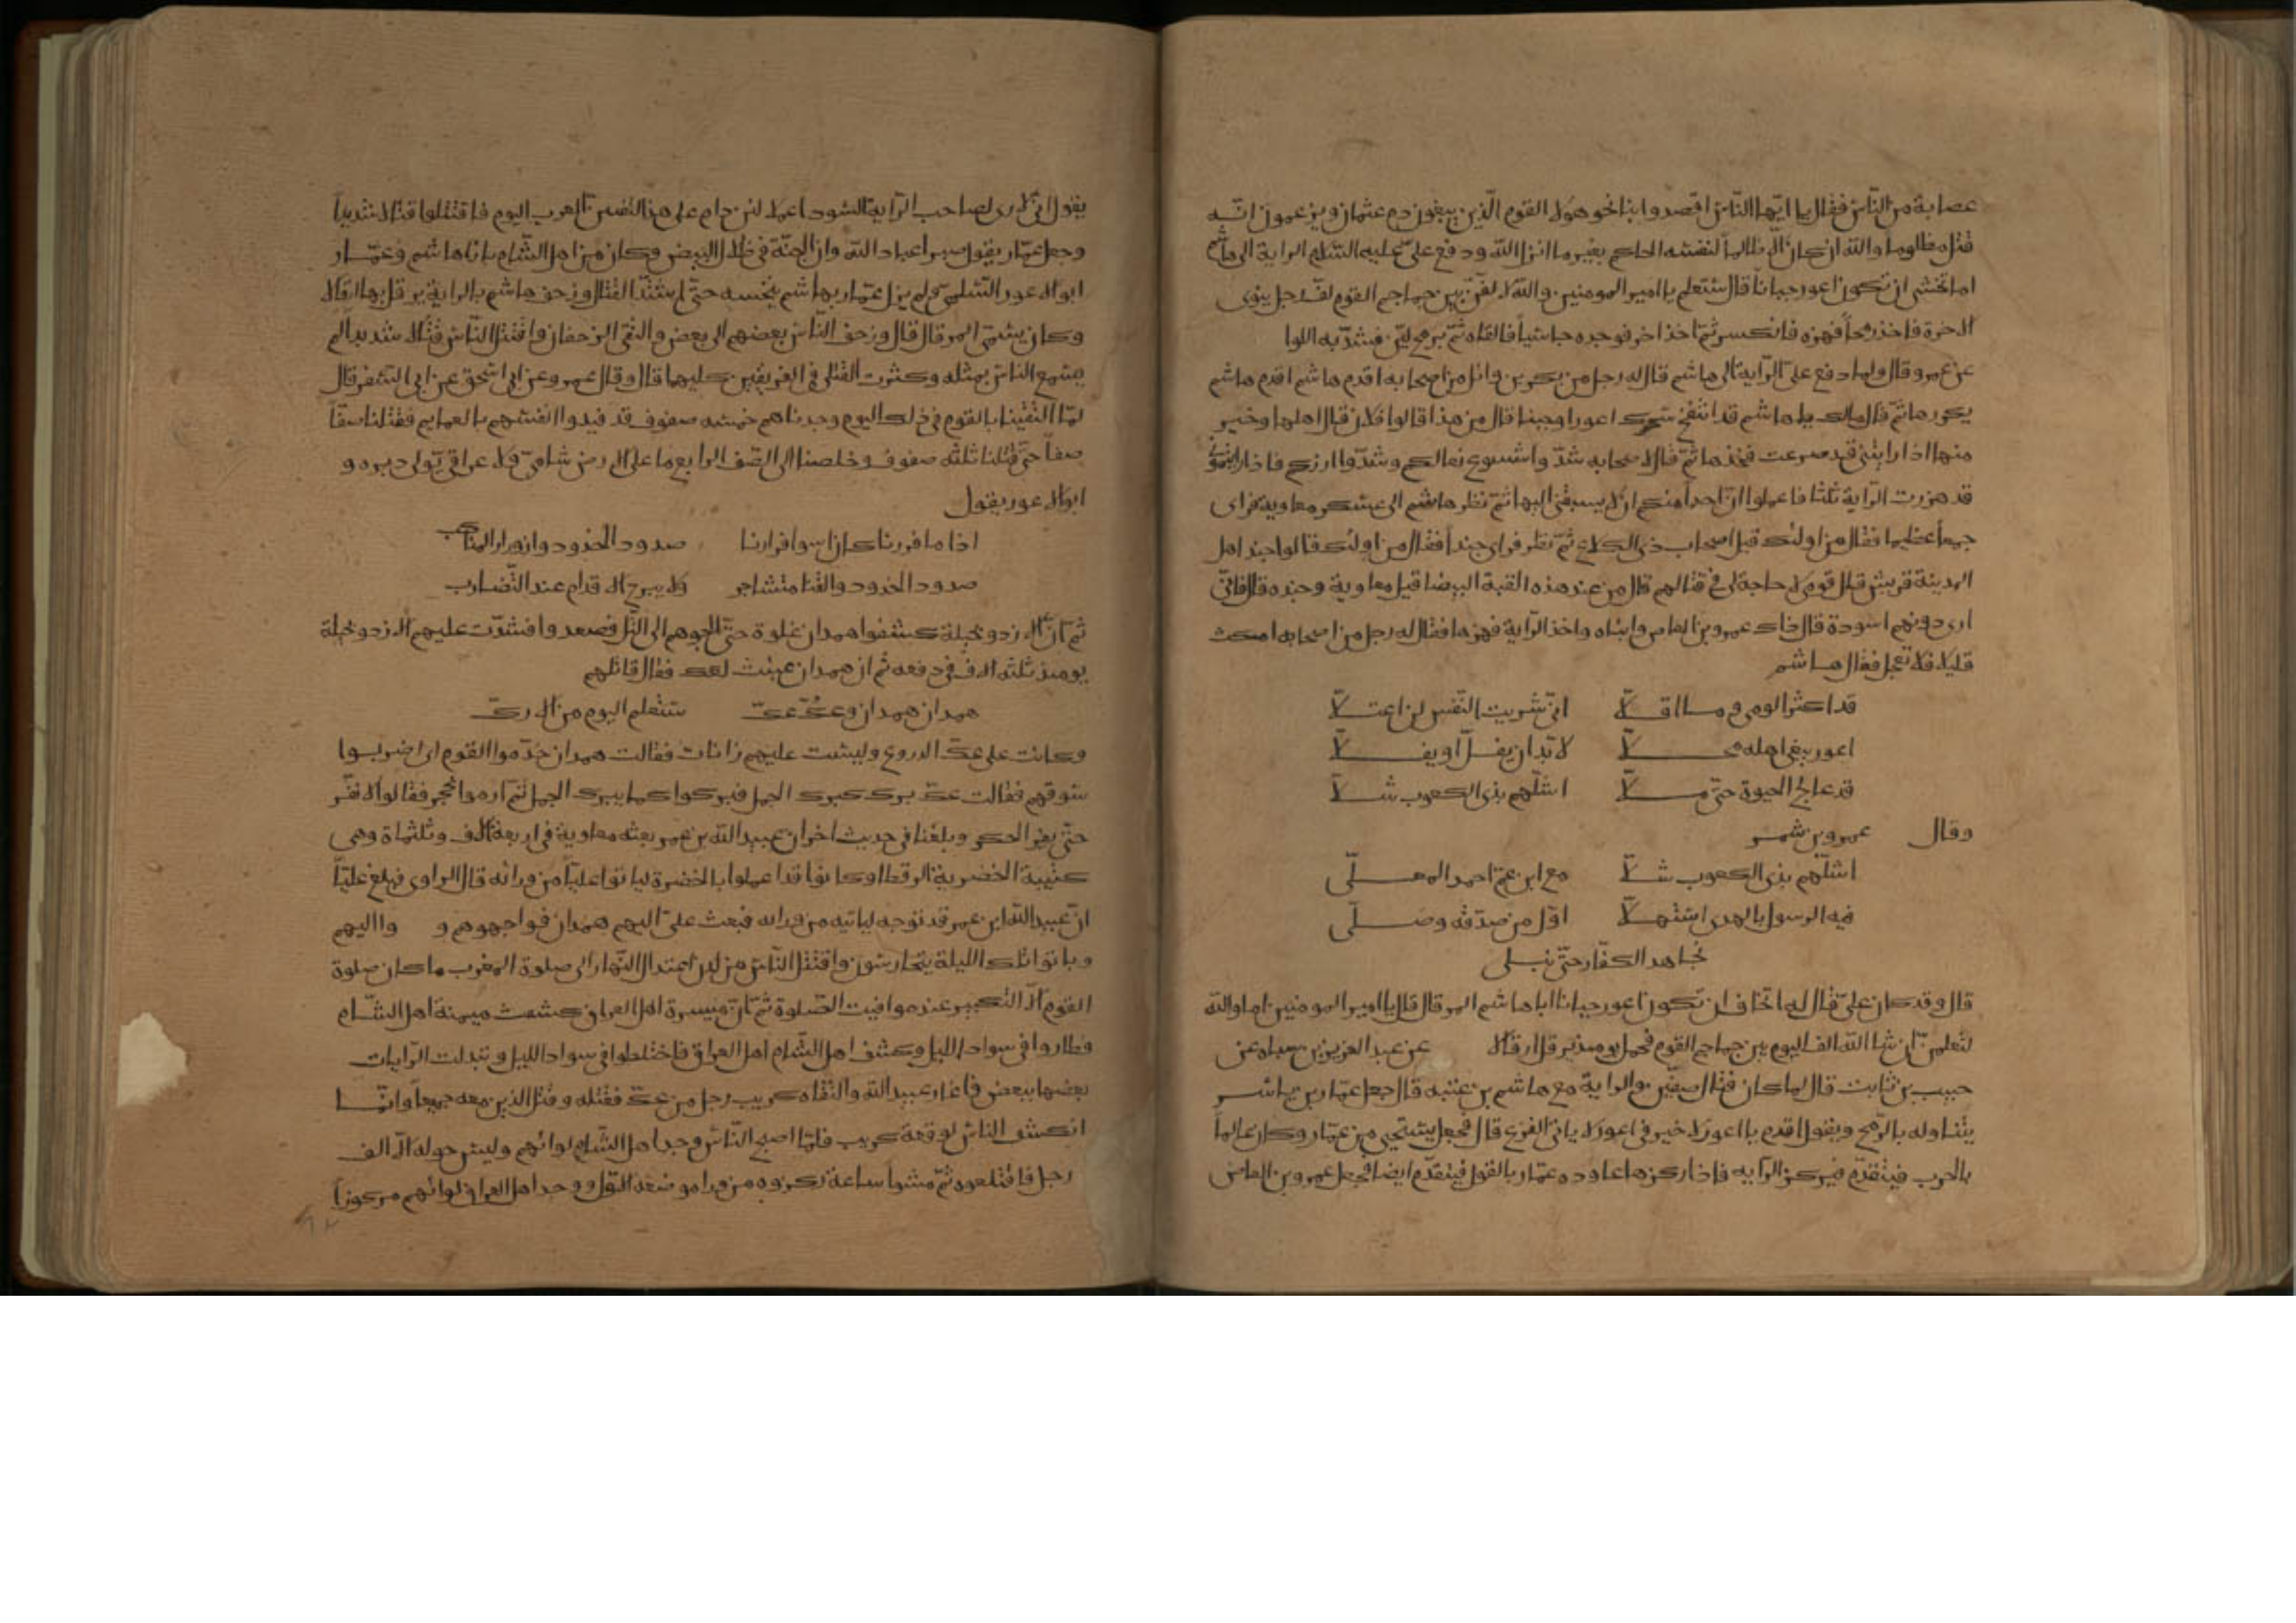 عصابة من الناس فقال يا ايها الناس اقصدوا بنا نحو هولا القوم الذين يبغون دم عثمان ويزعمون انه
قتل مظلوما والله ان كان الا ظالما لنفسه الحاكم بغير ما انزل الله ودفع علي عليه السلم الراية الى هاشم
اما تخشى ان تكون اعور جبانا قال ستعلم يا امير المومنين والله لالفن بين جماجم القوم لف رجل ينوى
الاخرة فاخذ رمحا فهزه فانكسر ثم اخذ اخر فوجده جاسيا فالقاه ثم برمح لين فشد به اللوا
عن عمرو قال ولما دفع علي الراية الى هاشم قال له رجل من بكر بن وائل من اصحابه اقدم هاشم اقدم هاشم
يكررها ثم قال مالك يا هاشم قد انتفخ سحرك اعورا وجبنا قال من هذا قالوا فلان قال اهلها وخير
منها اذا رايتني قد صرعت فخذها ثم قال لاصحابه شدوا شسوع نعالكم وشدوا ازركم فاذا رايتموني
قد هززت الراية ثلثا فاعلموا ان احدا منكم ان لا يسبقني اليها ثم نظر هاشم الى عسكر معاوية فراى
جمعا عظيما فقال من اولئك قيل اصحاب ذي الكلاع ثم نظر فراى جندا فقال من اولئك قالوا جند اهل
المدينة قريش قال قومي لا حاجة لي في قتالهم قال من عند هذه القبة البيضا قيل معاوية وجنده قال فاني
ارى دونهم اسودة قال ذاك عمرو بن العاص وابناه واخذ الراية فهزها فقال له رجل من اصحابه امكث
قليلا فلا تعجل فقال هاشم
قد اكثرا لومي وما اقلا اني شريت النفس لن اعتلا
اعور يبغي اهله محلا لا بد ان يفل او يفلا
قد عالج الحيوة حتى ملا اشلهم بذي الكعوب شلا
وقال عمرو بن شمر
اشلهم بذي الكعوب شلا مع ابن عم احمد المعلى
فيه الرسول بالهدى استهلا اول من صدقه وصلى
نجاهد الكفار حتى نبلى
قال وقد كان علي قال له اتخاف ان تكون اعور جبانا ابا هاشم المرقال قال يا امير المومنين اما والله
لتعلمن ان شا الله الف اليوم بين جماجم القوم فحمل يومئذ يرقل ارقالا عن عبد العزيز بن سياه عن
حبيب بن ثابت قال لما كان قتال صفين والراية مع هاشم بن عتبه قال جعل عمار بن ياسر
يتناوله بالرمح ويقول اقدم يا اعور لا خير في اعور لا ياتي الفزع قال فجعل يستحيي من عمار وكان عالما
بالحرب فيتقدم فيركز الرايه فاذا ركزها عاوده عمار بالقول فيتقدم ايضا فجعل عمرو بن العاص
يقول اني لارى لصاحب الراية السودا عملا لئن دام على هذا لتفنين العرب اليوم فاقتتلوا قتالا شديدا
وجعل عمار يقول صبرا عباد الله وان الجنة في ظلال البيض وكان من اهل الشام بازا هاشم وعمار
ابو الاعور السلمي ولم يزل عمار بهاشم ينخسه حتى اشتد القتال وزحف هاشم بالراية يرقل بها ارقالا
وكان يسمى المرقال قال وزحف الناس بعضهم الى بعض والتقى الزحفان واقتتل الناس قتالا شديدا لم
يسمع الناس بمثله وكثرت القتلى في الفريقين كليهما قال وقال عمرو عن ابي اسحق عن ابي السفر قال
لما التقينا بالقوم في ذلك اليوم وجدناهم خمسه صفوف قد قيدوا انفسهم بالعمايم فقتلنا صفا
صفا حتى قتلنا ثلثه صفوف وخلصنا الى الصف الرابع ما على الارض شامي ولا عراقي يولى دبره و
ابو الاعور يقول
اذا ما فررنا كان اسوا فرارنا صدود الخدود وازورار المناكب
صدود الخدود والقنا متشاجر ولا يبرح الاقدام عند التضارب
ثم ان الازد وبجيلة كشفوا همدان غلوة حتى الجوهم الى التل فصعدوا فشدت عليهم الازد وبجيلة
يومئذ ثلثه الاف في دفعه ثم ان همدان عبئت لعك فقال قائلهم
همدان همدان وعك عك ستعلم اليوم من الارك
وكانت على عك الدروع وليست عليهم رانات فقالت همدان خدموا القوم اى اضربوا
سوقهم فقالت عك برك كبرك الجمل فبركوا كما يبرك الجمل ثم ارموا بحجر فقالوا لا نفر
حتى يفر الحكر وبلغنا في حديث اخر ان عبيد الله بن عمر بعثه معاوية في اربعة الاف وثلثماة وهى
كتيبة الخضرية الرقطا وكانوا قد اعملوا بالخضرة لياتوا عليا من ورائه قال الراوى فبلغ عليا
ان عبيد الله ابن عمر قد توجه لياتيه من ورائه فبعث علي اليهم همدان فواجهوهم و وا اليهم
وباتوا تلك الليلة يتحارسون واقتتل الناس من لدن اعتدال النهار الى صلوة المغرب ما كان صلوة
القوم الا التكبير عند مواقيت الصلوة ثم ان ميسرة اهل العراق كشفت ميمنة اهل الشام
فطاروا في سواد الليل وكشف اهل الشام اهل العراق فاختلطوا في سواد الليل وتبدلت الرايات
بعضها ببعض فاغار عبيد الله والتقاه كريب رجل من عك فقتله وقتل الذين معه جميعا وانما
انكشف الناس لوقعة كريب فلما اصبح الناس وجد اهل الشام لوائهم وليس حوله الا الف
رجل فاقتلعوه ثم مشوا ساعة من ورا موضعه الاول ووجد اهل العراق لوائهم مركوزا